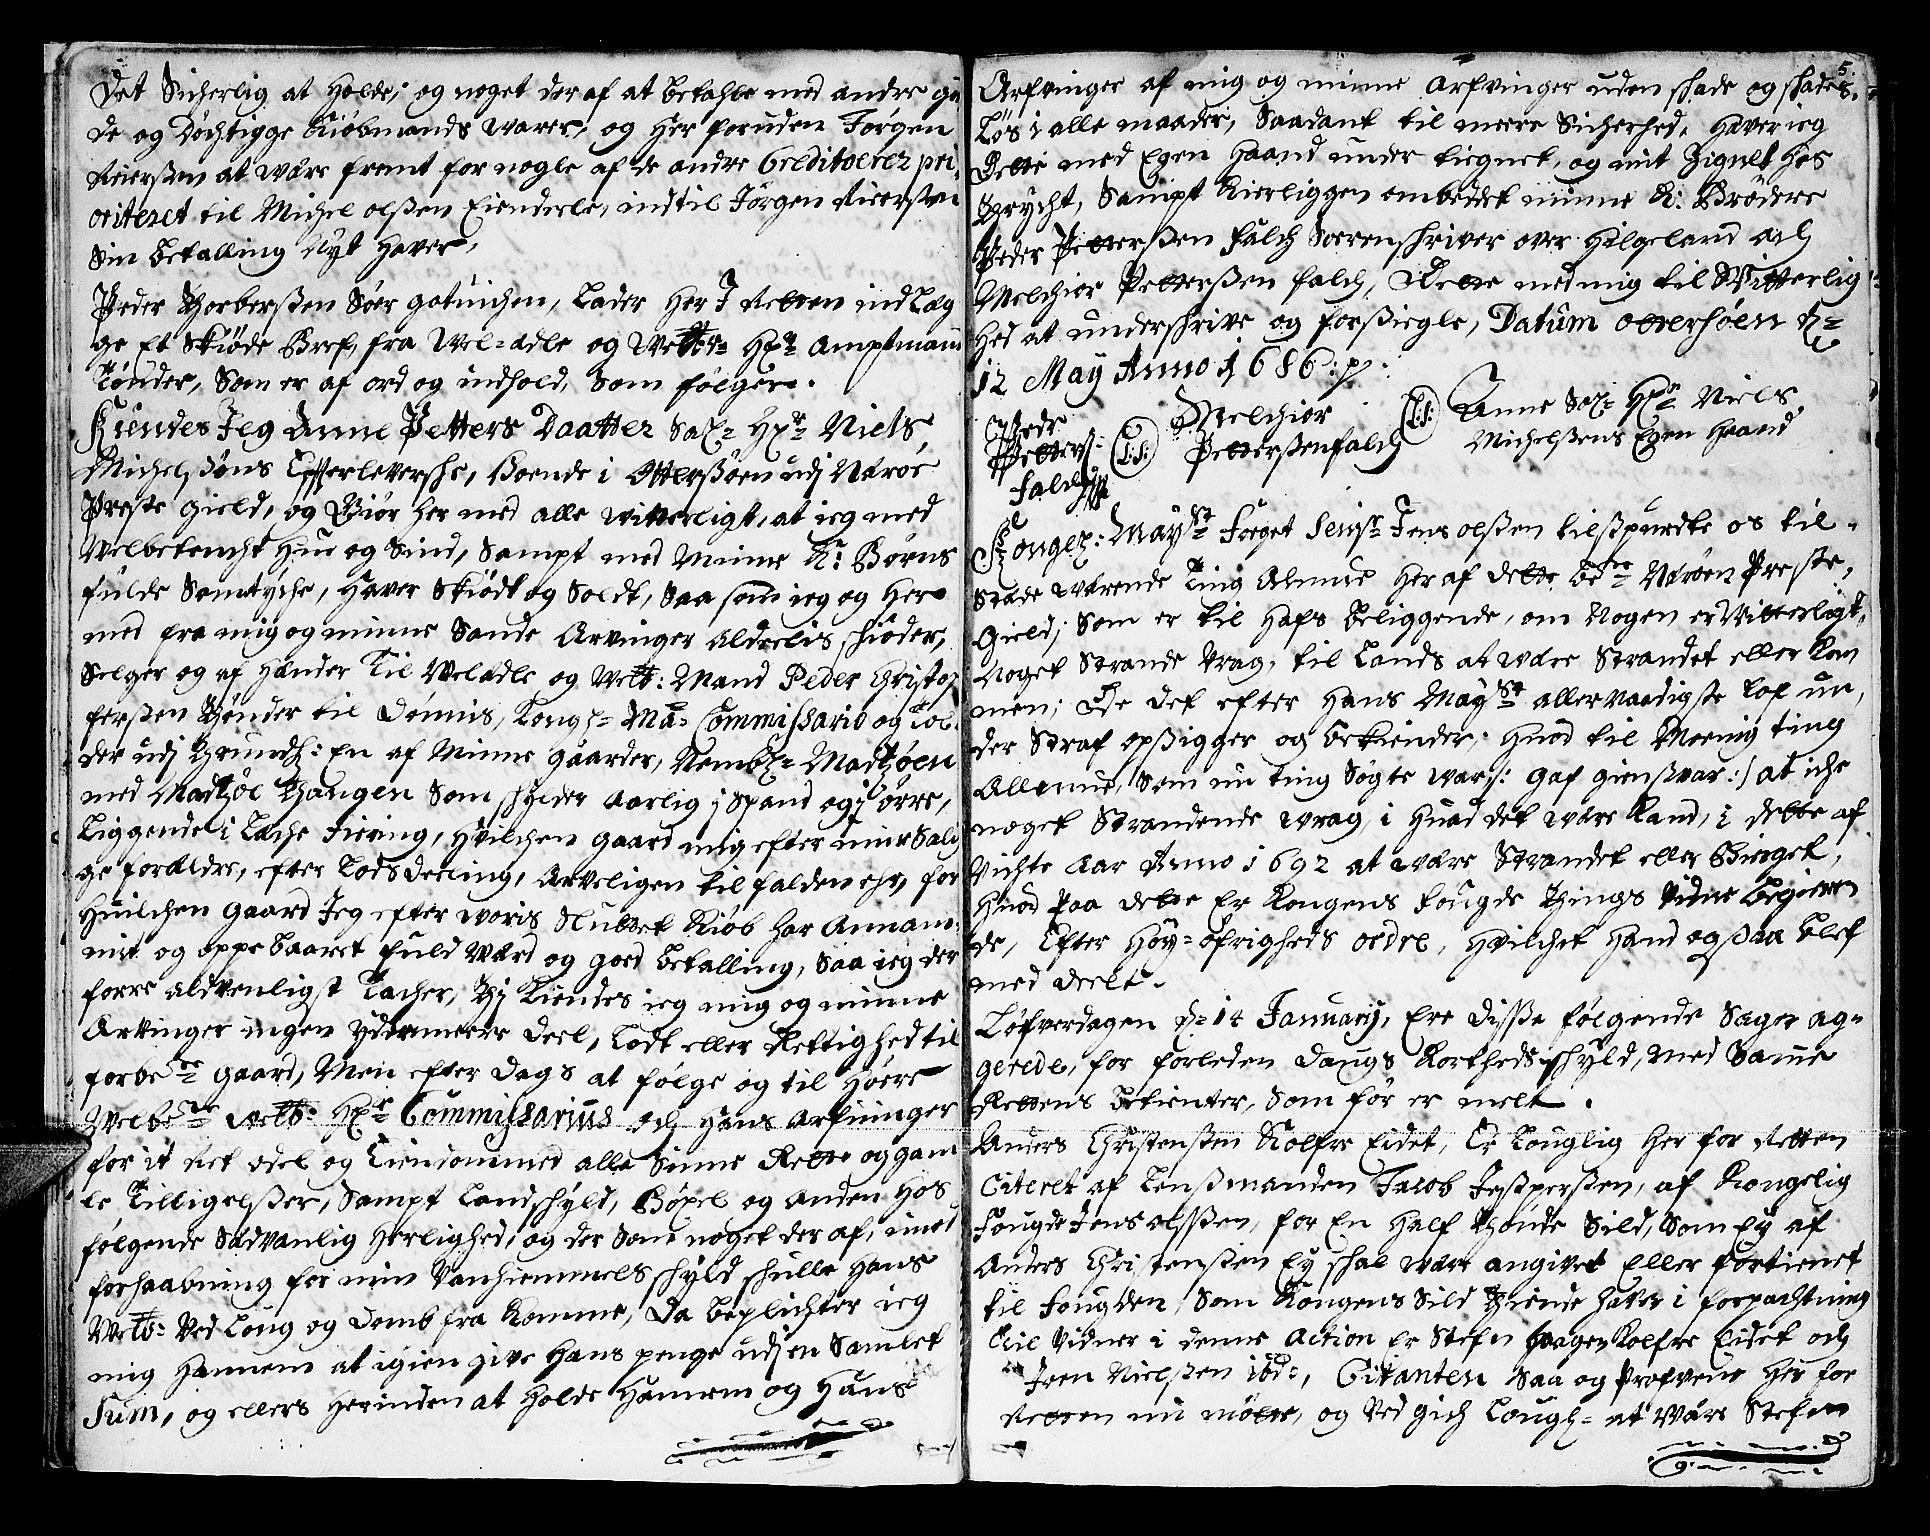 Det Sicherlig at Holde, og noget der af at betahle med andre gu
de og Døchtigge Kiøbmands warer, og Her foruden Jørgen
Reierßen at være fremt for nogle af de andre Creditoerer pri,
oriteret til Michel olßen Eienderle, indtil Jørgen Reierßen
Sin betalling Nyt Haver,
Peder Thorberßen Sør gotuichen, Lader Her I Retten indLæg
ge Et Skiøde Bref, fra Wel-ædle og Welb: Hr: Amptmand
Tønder, Som er af ord og indhold, Som følger.
Kiendes Jeg Anne Petters Daatter Sal: Hr: Niels
Michelsøns Efterleversche, Boende i Otterßøen udj Nærøe
Præste gield, og Giør her med alle witterligt, at ieg med
Velbetencht Hue og Sind, Sampt med Minne K: Børns
fulde Samtyche, Haver Skiødt og Soldt, Saa som ieg og Her
med fra mig og minne Sande Arvinger aldeelis schiøder,
Selger og af Hænder Til Welædle og Welb: Mand Peder Christof
ferßen Tønder til Dønnis, Kongl: Ma: Commissario og Fol
der udj Trundh: En af Minne gaarder, Nembl: Madsøen
med Madsøe Haugen Som schylder Aarlig j Spand og j øvre,
Liggende i Leche Fiering, Hvilchen gaard mig efter mine Sali
ge forældre, efter Lods deeling, Arveligen til falden ehr, for
Huilchen gaard Jeg efter woris Sluttet Kiøb har Annam,
mit og oppebaaret fuld Værd og goed betalling, Saa ieg der
forre aldvenligst Tacher, Thj Kiendes ieg mig og minne
Arvinger ingen Ydermeere deel, Lodt eller Rettighed til
forbe:te gaard, Men efter Dags at følge og til Høere
Welbe:te Welb: Hr: Commissarius och Hans Arfuinger
for it Ret odel og Eiendom med alle Sinne Rette og gam
le Tilligelßer, Sampt Landschyld, Bøxel og anden Hos
følgende Sædvanlig Herlighed, og der Som noget der af, imod
forhaabning for min Vanhiemmels schyld schulle Hans
Welb: Ved Loug og Domb fra Komme, Da beplichter ieg
mig Hannem at igien give Hans penge udj en Samlet
Sum, og ellers Herinden at Holde Hannem og Hans
5.
Arfvinger af mig og minne Arfvinger uden schade og schades,
Løs i alle maader, Saadant til meere Sicherhed, Haver ieg
Dette med Egen Haand under tegnet, og mit Zignet Hos
Trycht, Sampt Kierliggen ombedet minne K: Brødere
Peder Petterßen Falch Sorenschriver over Helgeland och
Melchior Petterßen Falch, Dette med mig til Witterlig
Hed at underschrive og forßiegle, Datum Otterßøen d:
12 May Anno 1686:
Peder
Petterß:
Falch
(L:S:)
Melchior
Petterßen Falch
(L:S:)
Anne Sal: Hr: Niels
Michelßens Egen Haand
Kongl: Mayst: Foget Seigr: Jens olßen tilßpurdte os til
Stæde værende Ting Almue Her af dette be:te Nærøen Præste,
Gield, Som er til Hafs beliggende, om Nogen er Vitterligt,
Noget Strande Vrag, til Lands at være Strandet eller Kom
men, De det efter Hans Mayst: allernaadigste Lof un,
der Straf opßigger og bekiender; Huod til Meenig ting
Allmue, Som nu ting Søgte war (: gaf gienßvar :) at iche
noget Strandende wrag, i Huad det være Kand, i dette af
Vichte aar Anno 1692 at være Strandet eller Bierget,
Huod Paa dette Er Kongens Fougde Things Vidne begieren
de, Efter Høy-øfrigheds ordre, Hvilchet Hand ogßaa blef
med deelt.
Løfverdagen d: 14 January, Ere disse følgende Sager ag,
gerede, for forleden Daugs Kortheds schyld, med Samme
Rettens betienter, Som før er melt.
Anders Christenßen Kolfre Eidet, Er Louglig her for Retten
Citeret af Lenßmanden Jacob Jesperßen, af Kongelig
Fougde Jens olßen, for En Half Thønde Sild, Som Ey af
Anders Christenßen Ey schal være angivet Eller fortienet
til Fougden, Som Kongens Sild Thiende Haver i forpachtning
Til Vidner i denne Action Er Stefen Haagen Kolfre Eidet och
Iven Nielßen ibd:, Citanten Saa og Profvene Her for
Retten nu møtte, og Ved gich Lougl: at være Stefn